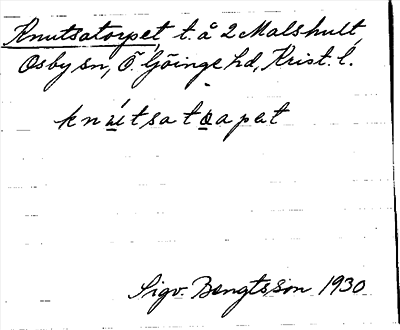 Knutsatorpet t. å 2 Malshult,
Osby sn, Ö. Göinge hd, Krist. l.
knú̱tsato̱apat
Sigv. Bengtsson 1930